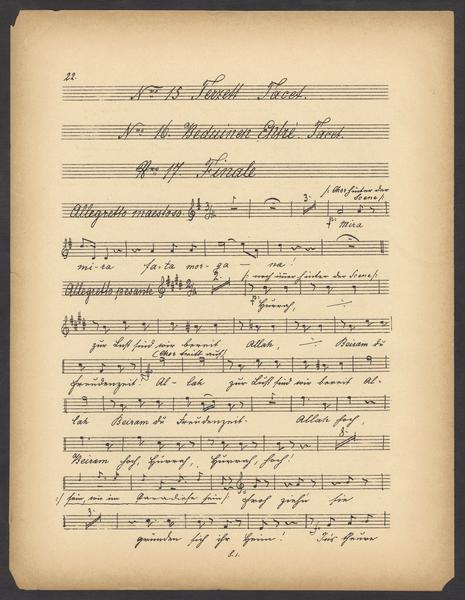 22.
Nro 15 Terzett Tacet.
Nro 16. Beduinen Entré. Tacet.
Nro 17. Finale
/: Chor hinter der
Allegretto maestoso 3. Scene :/
Mira
mi-ra fa-ta mor-ga-na!
/: noch immer hinter der Scene :/
Allegretto pesante 2.
Hurrah,
zur Lust sind wir bereit Allah, Beiram du
(Chor tritt auf)
Freudenzeit. Al-lah zur Lust sind wir bereit Al-
lah Beiram du Freudenzeit. Allah hoch,
Beiram hoch, Hurrah, Hurrah, hoch! 8.
:/ sein, wie im Paradiese sein /: Froh ziehn sie
3.
gründen sich ihr Heim! Ins